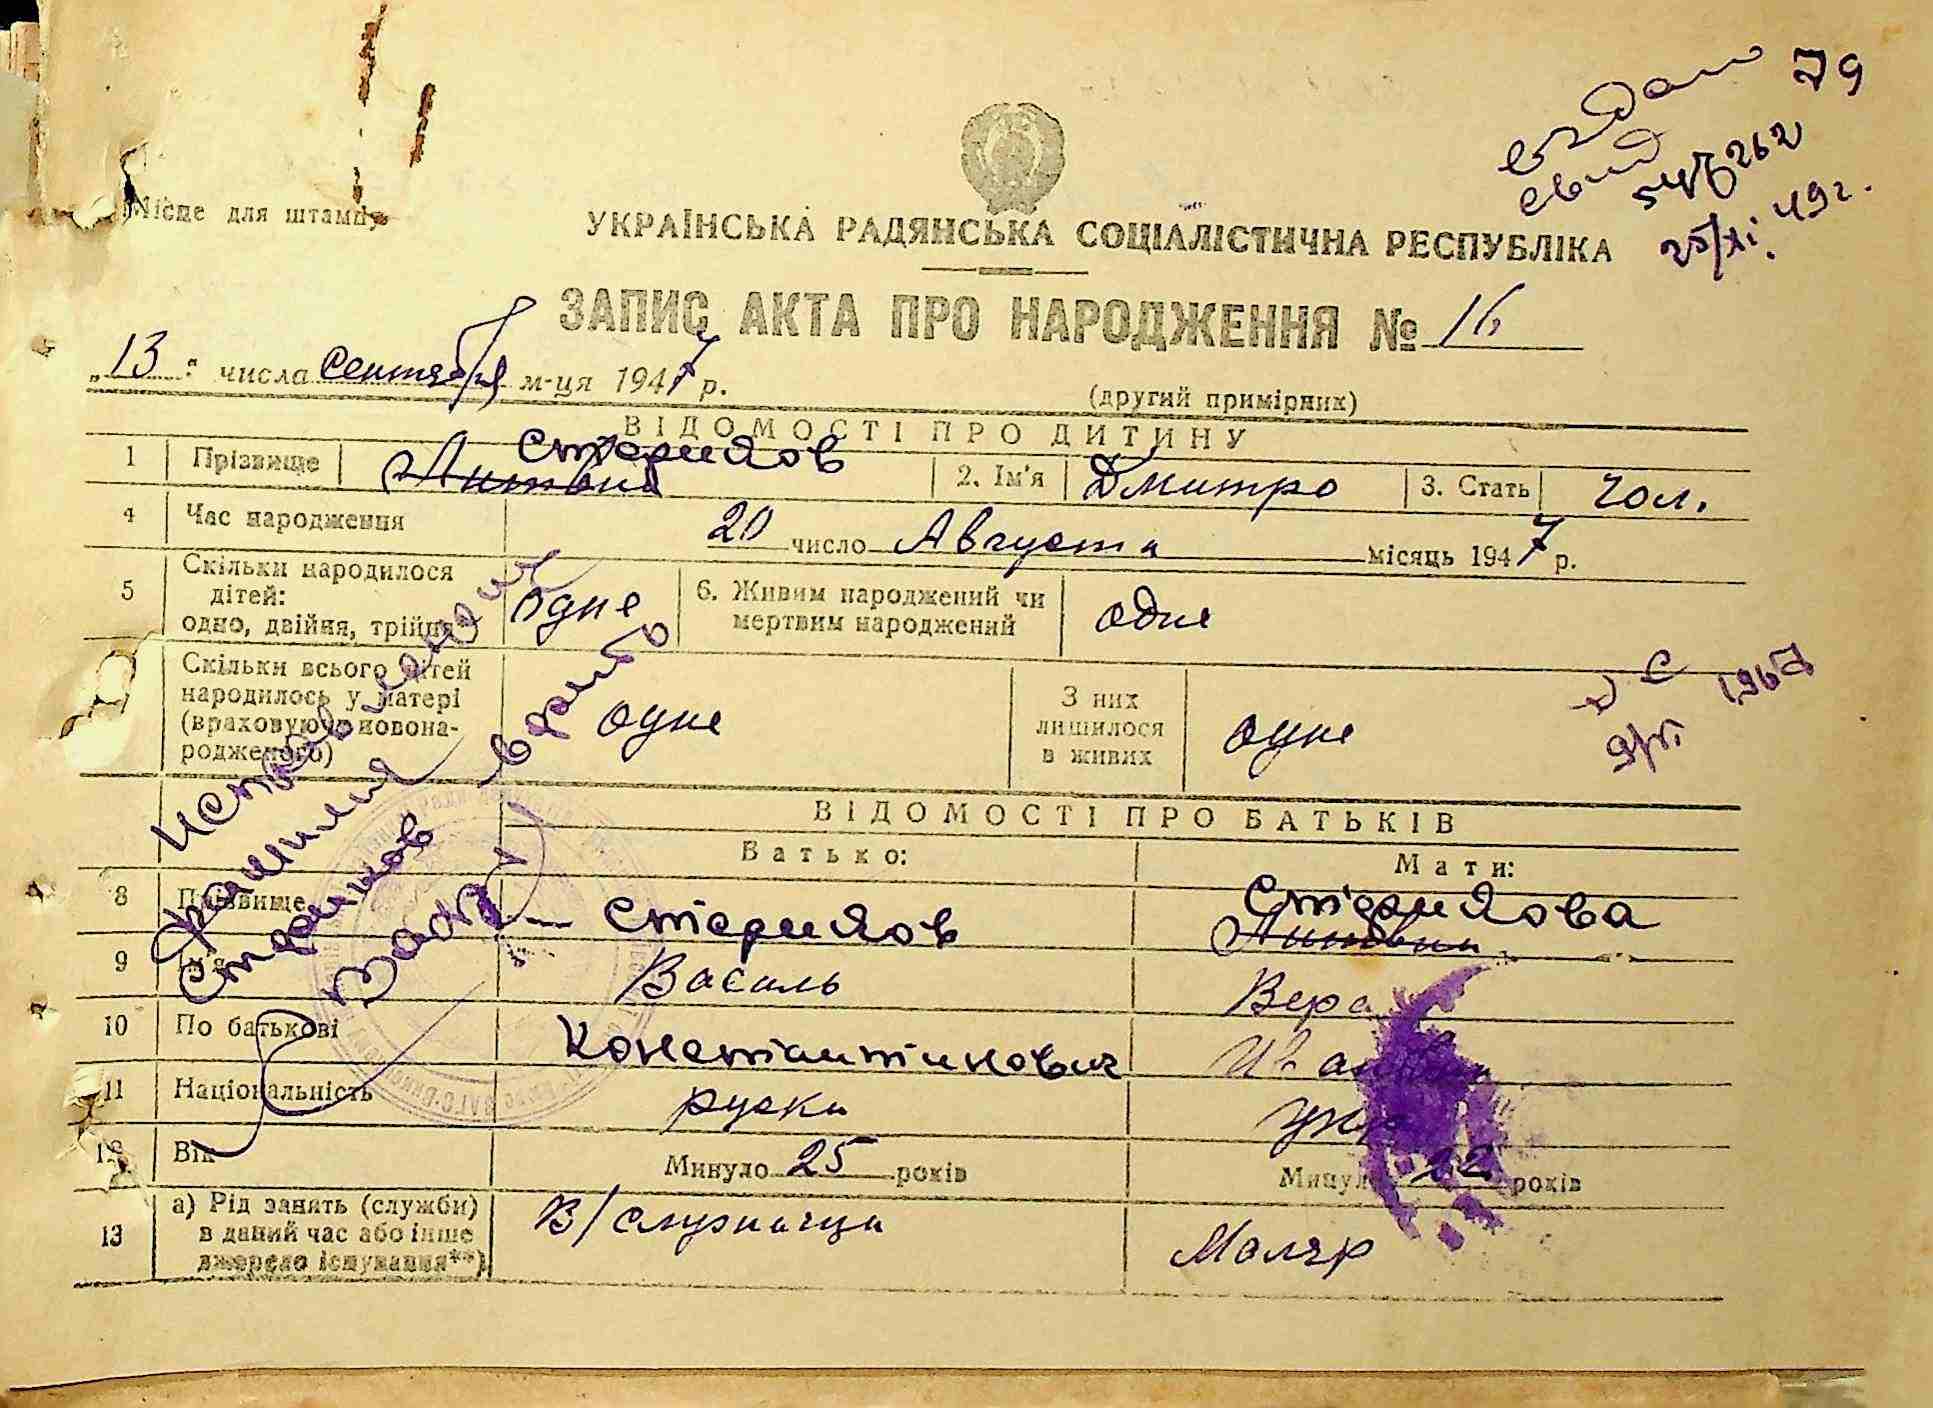 79
видано
свид
262
25/XI. 49 г.
Місце для штампу
УКРАЇНСЬКА РАДЯНСЬКА СОЦІАЛІСТИЧНА РЕСПУБЛІКА
ЗАПИС АКТА ПРО НАРОДЖЕННЯ № 16
„13" числа сентября м-ця 1947 р.
(другий примірник)
ВІДОМОСТІ ПРО ДИТИНУ
1 Прізвище Литвин 2. Ім'я Дмитро 3. Стать чол.
4 Час народження 20 число Августа місяць 1947 р.
5 Скільки народилося дітей: одно, двійня, трійця одне 6. Живим народжений чи мертвим народжений одне
Скільки всього дітей народилось у матері (враховуючи новонародженого) одне З них лишилося в живих одне
1967
ВІДОМОСТІ ПРО БАТЬКІВ
Батько: Мати:
8 Прізвище
9 Ім'я Василь Вера
10 По батькові Константинович
11 Національність руски укр
12 Вік Минуло 25 років Минуло 22 років
13 а) Рід занять (служби) в даний час або інше джерело існування**) В/служачци Маляр
фамилия
верить